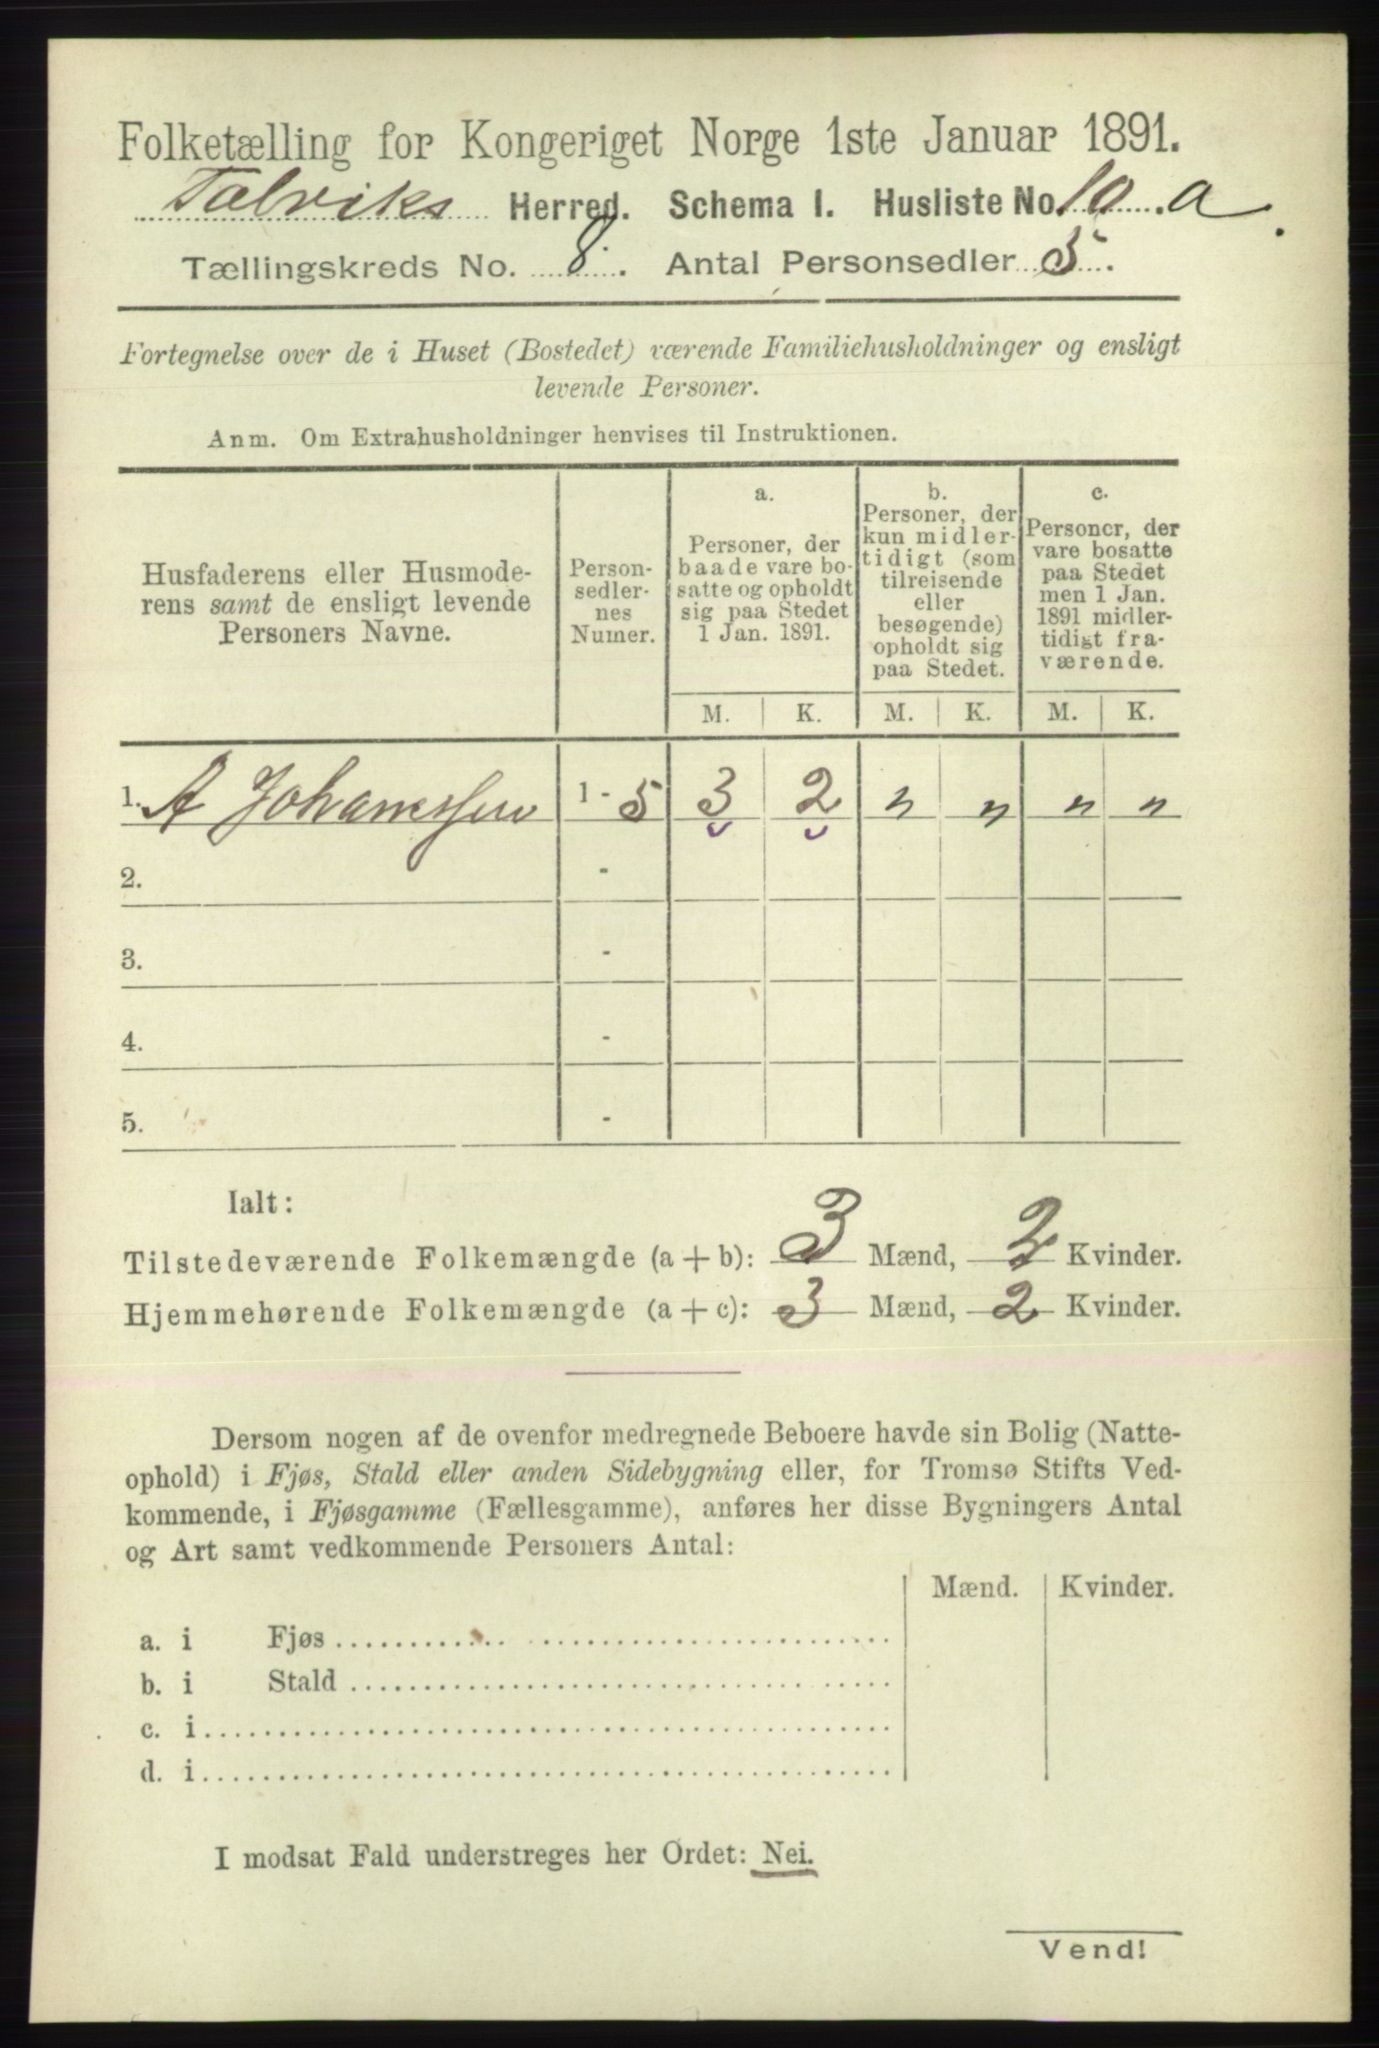 Folketælling for Kongeriget Norge 1ste Januar 1891.
Talviks Herred. Schema I. Husliste No. 10 a.
Tællingskreds No. 8. Antal Personsedler 5.
Fortegnelse over de i Huset (Bostedet) værende Familiehusholdninger og ensligt
levende Personer.
Anm. Om Extrahusholdninger henvises til Instruktionen.
Husfaderens eller Husmode-
rens samt de ensligt levende
Personers Navne.
Person-
sedler-
nes
Numer.
a.
Personer, der
baade vare bo-
satte og opholdt
sig paa Stedet
1 Jan. 1891.
b.
Personer, der
kun midler-
tidigt (som
tilreisende
eller
besøgende)
opholdt sig
paa Stedet.
c.
Personer, der
vare bosatte
paa Stedet
men 1 Jan.
1891 midler-
tidigt fra-
værende.
M. K. M. K. M. K.
1. A Johannessen 1 - 5 3 2 " " " "
2. -
3. -
4. -
5. -
Ialt:
Tilstedeværende Folkemængde (a + b): 3 Mænd, 2 Kvinder.
Hjemmehørende Folkemængde (a + c): 3 Mænd, 2 Kvinder.
Dersom nogen af de ovenfor medregnede Beboere havde sin Bolig (Natte-
ophold) i Fjøs, Stald eller anden Sidebygning eller, for Tromsø Stifts Ved-
kommende, i Fjøsgamme (Fællesgamme), anføres her disse Bygningers Antal
og Art samt vedkommende Personers Antal:
Mænd. Kvinder.
a. i Fjøs
b. i Stald
c. i
d. i
I modsat Fald understreges her Ordet: Nei.
Vend!